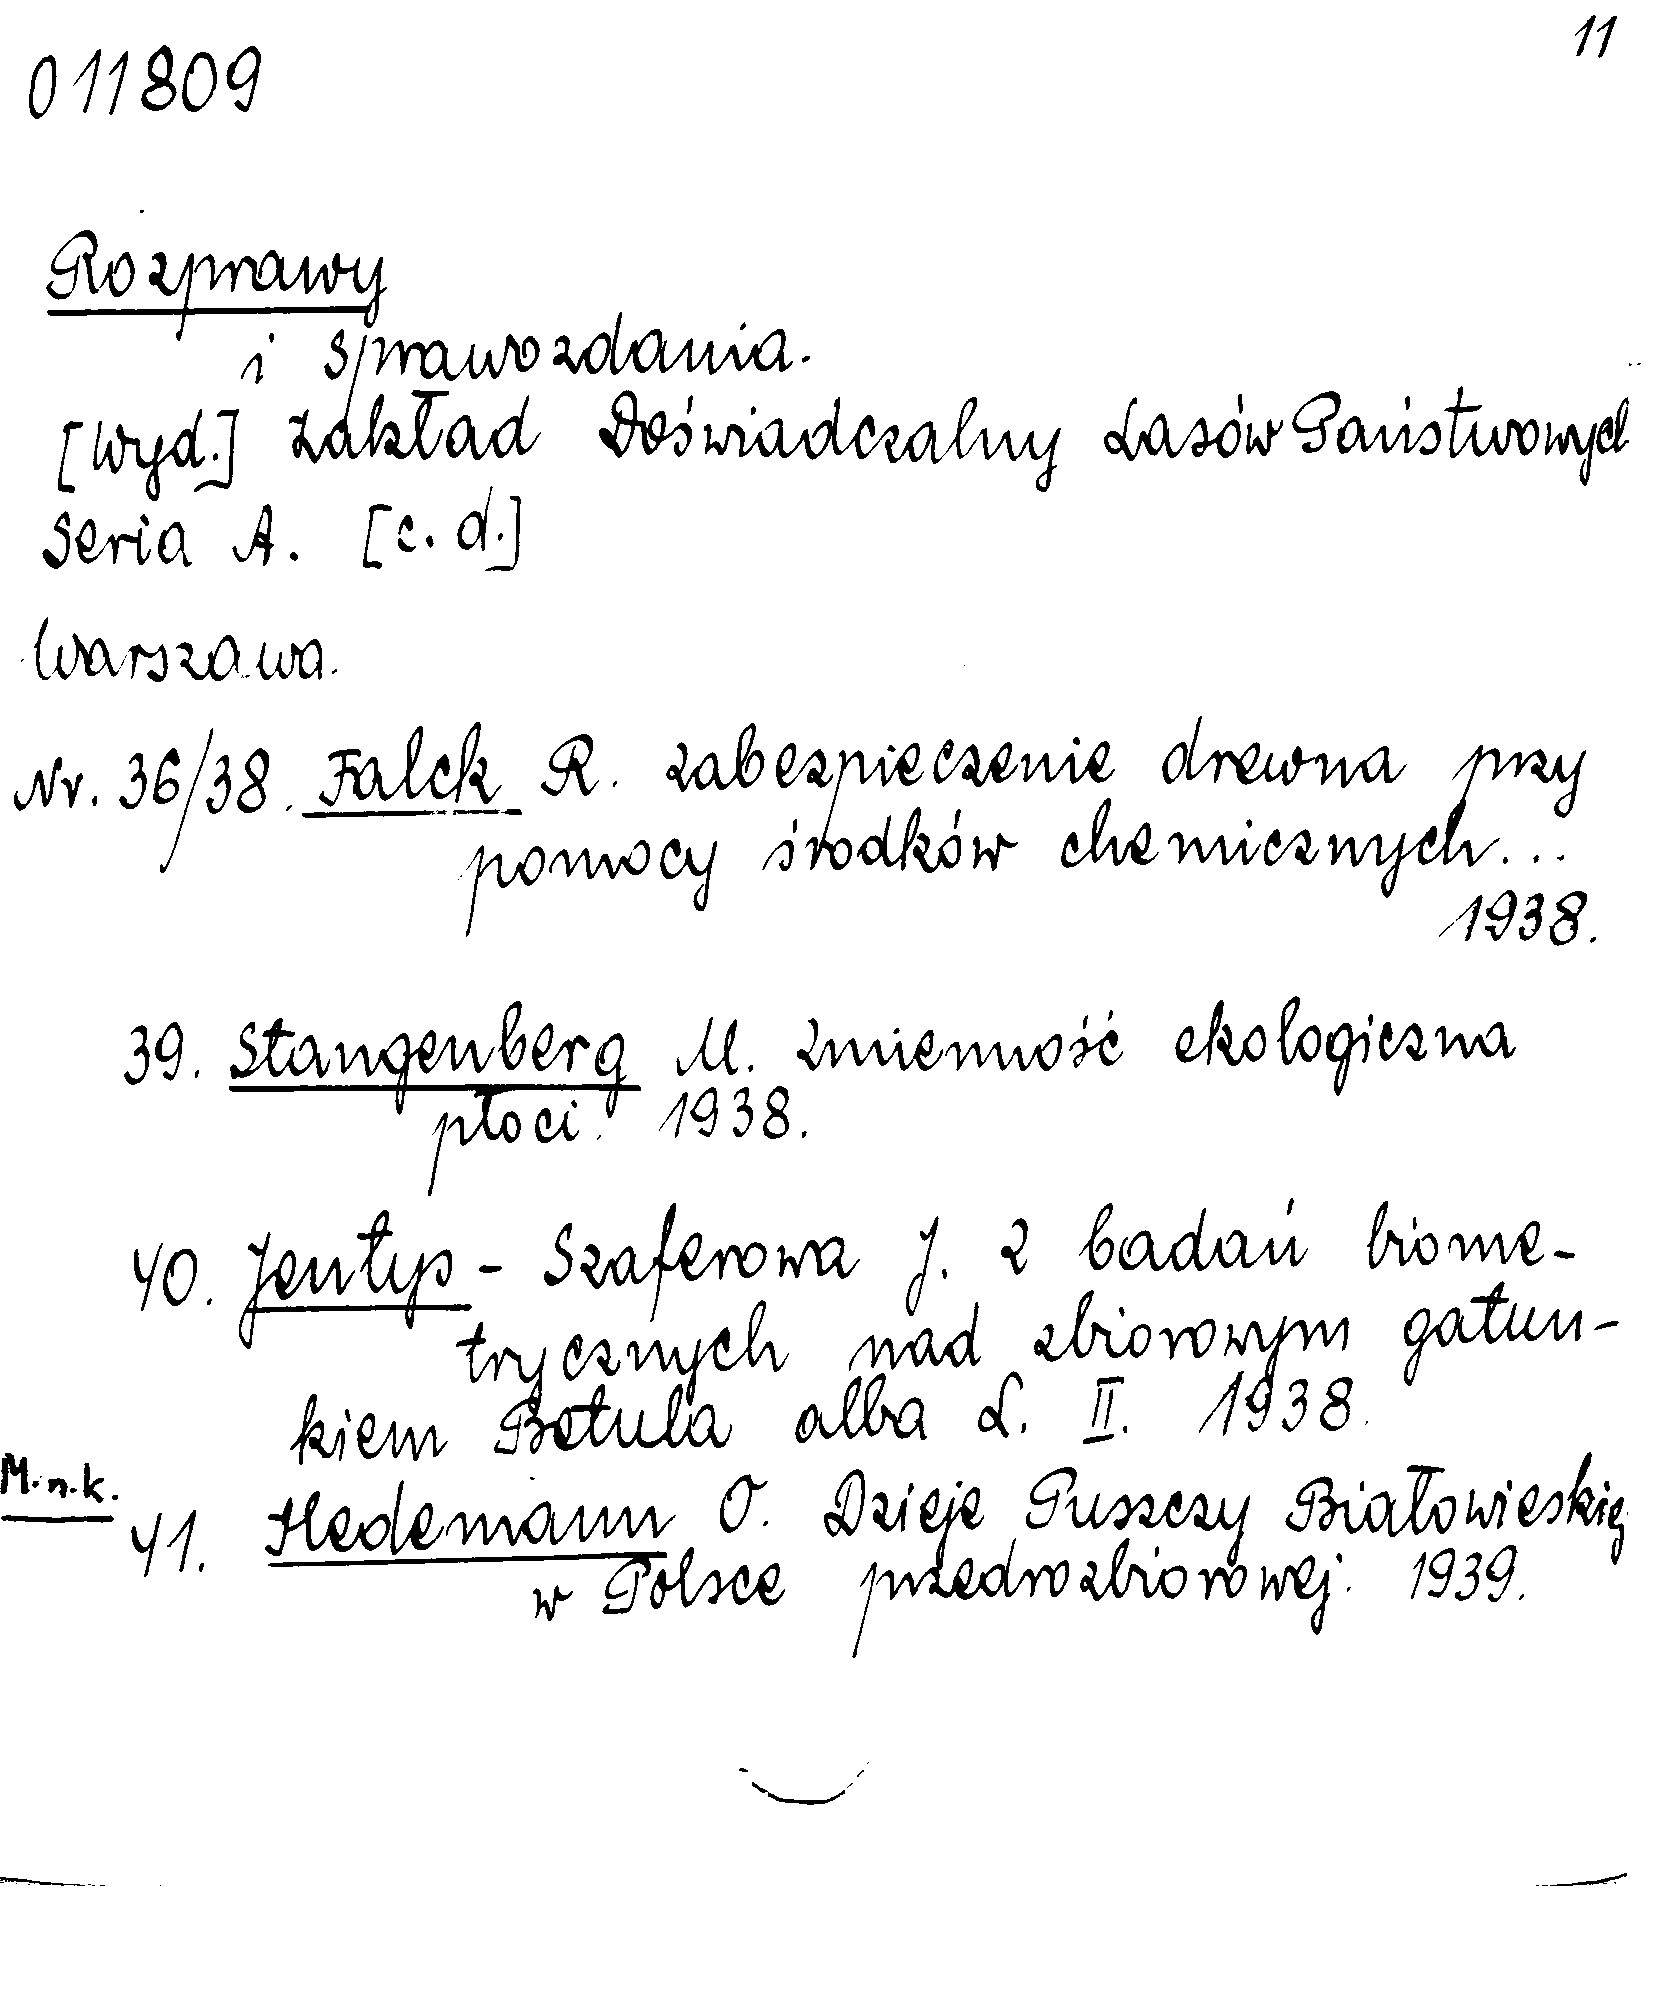 11
011809
Rozprawy
i sprawozdania.
[Wyd.] Zakład Doświadczalny Lasów Państwowych
Seria A. [c. d.]
Warszawa.
Nr. 36/38. Falck R. Zabezpieczenie drewna przy
pomocy środków chemicznych...
1938.
39. Stangenberg M. Zmienność ekologiczna
płoci. 1938.
40. Jentys - Szaferowa J. Z badań biome-
trycznych nad zbiorowym gatun-
kiem Betula alba L. II. 1938.
M.n.k.
41. Hedemann O. Dzieje Puszczy Białowieskiej
w Polsce przedrozbiorowej. 1939.